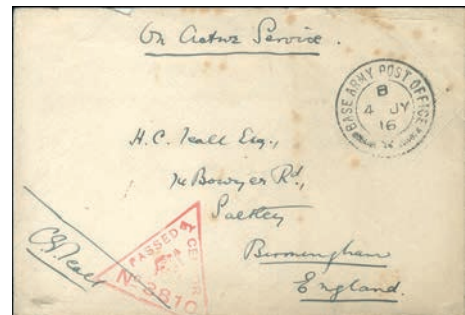 On Active Service.
BASE ARMY POST OFFICE
B
4 JY
16
H.C. Teall Esq.,
74 Bowyer Rd.,
Saltley
Birmingham
England.
PASSED BY CENSOR
No 3810
Teall